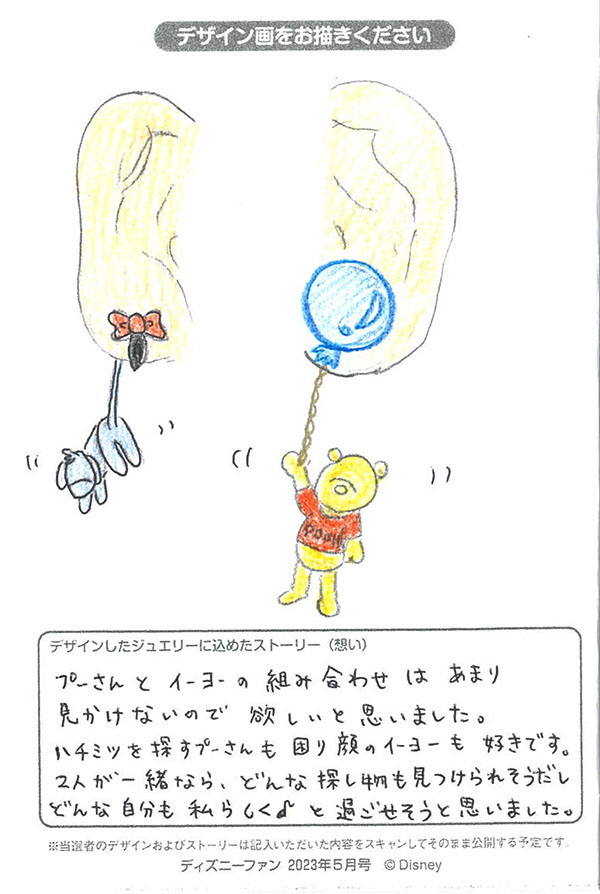 デザイン画をお描きください
POOH
デザインしたジュエリーに込めたストーリー（想い）
プーさんと イーヨーの 組み合わせ は あまり
見かけないので 欲しいと 思いました。
ハチミツを探すプーさんも 困り顔のイーヨーも 好きです。
2人が一緒なら、どんな 探し物も見つけられそうだし
どんな 自分も 私らしく♪ と 過ごせそうと思いました。
※当選者のデザインおよびストーリーは記入いただいた内容をスキャンしてそのまま公開する予定です。
ディズニーファン 2023年5月号 ©Disney